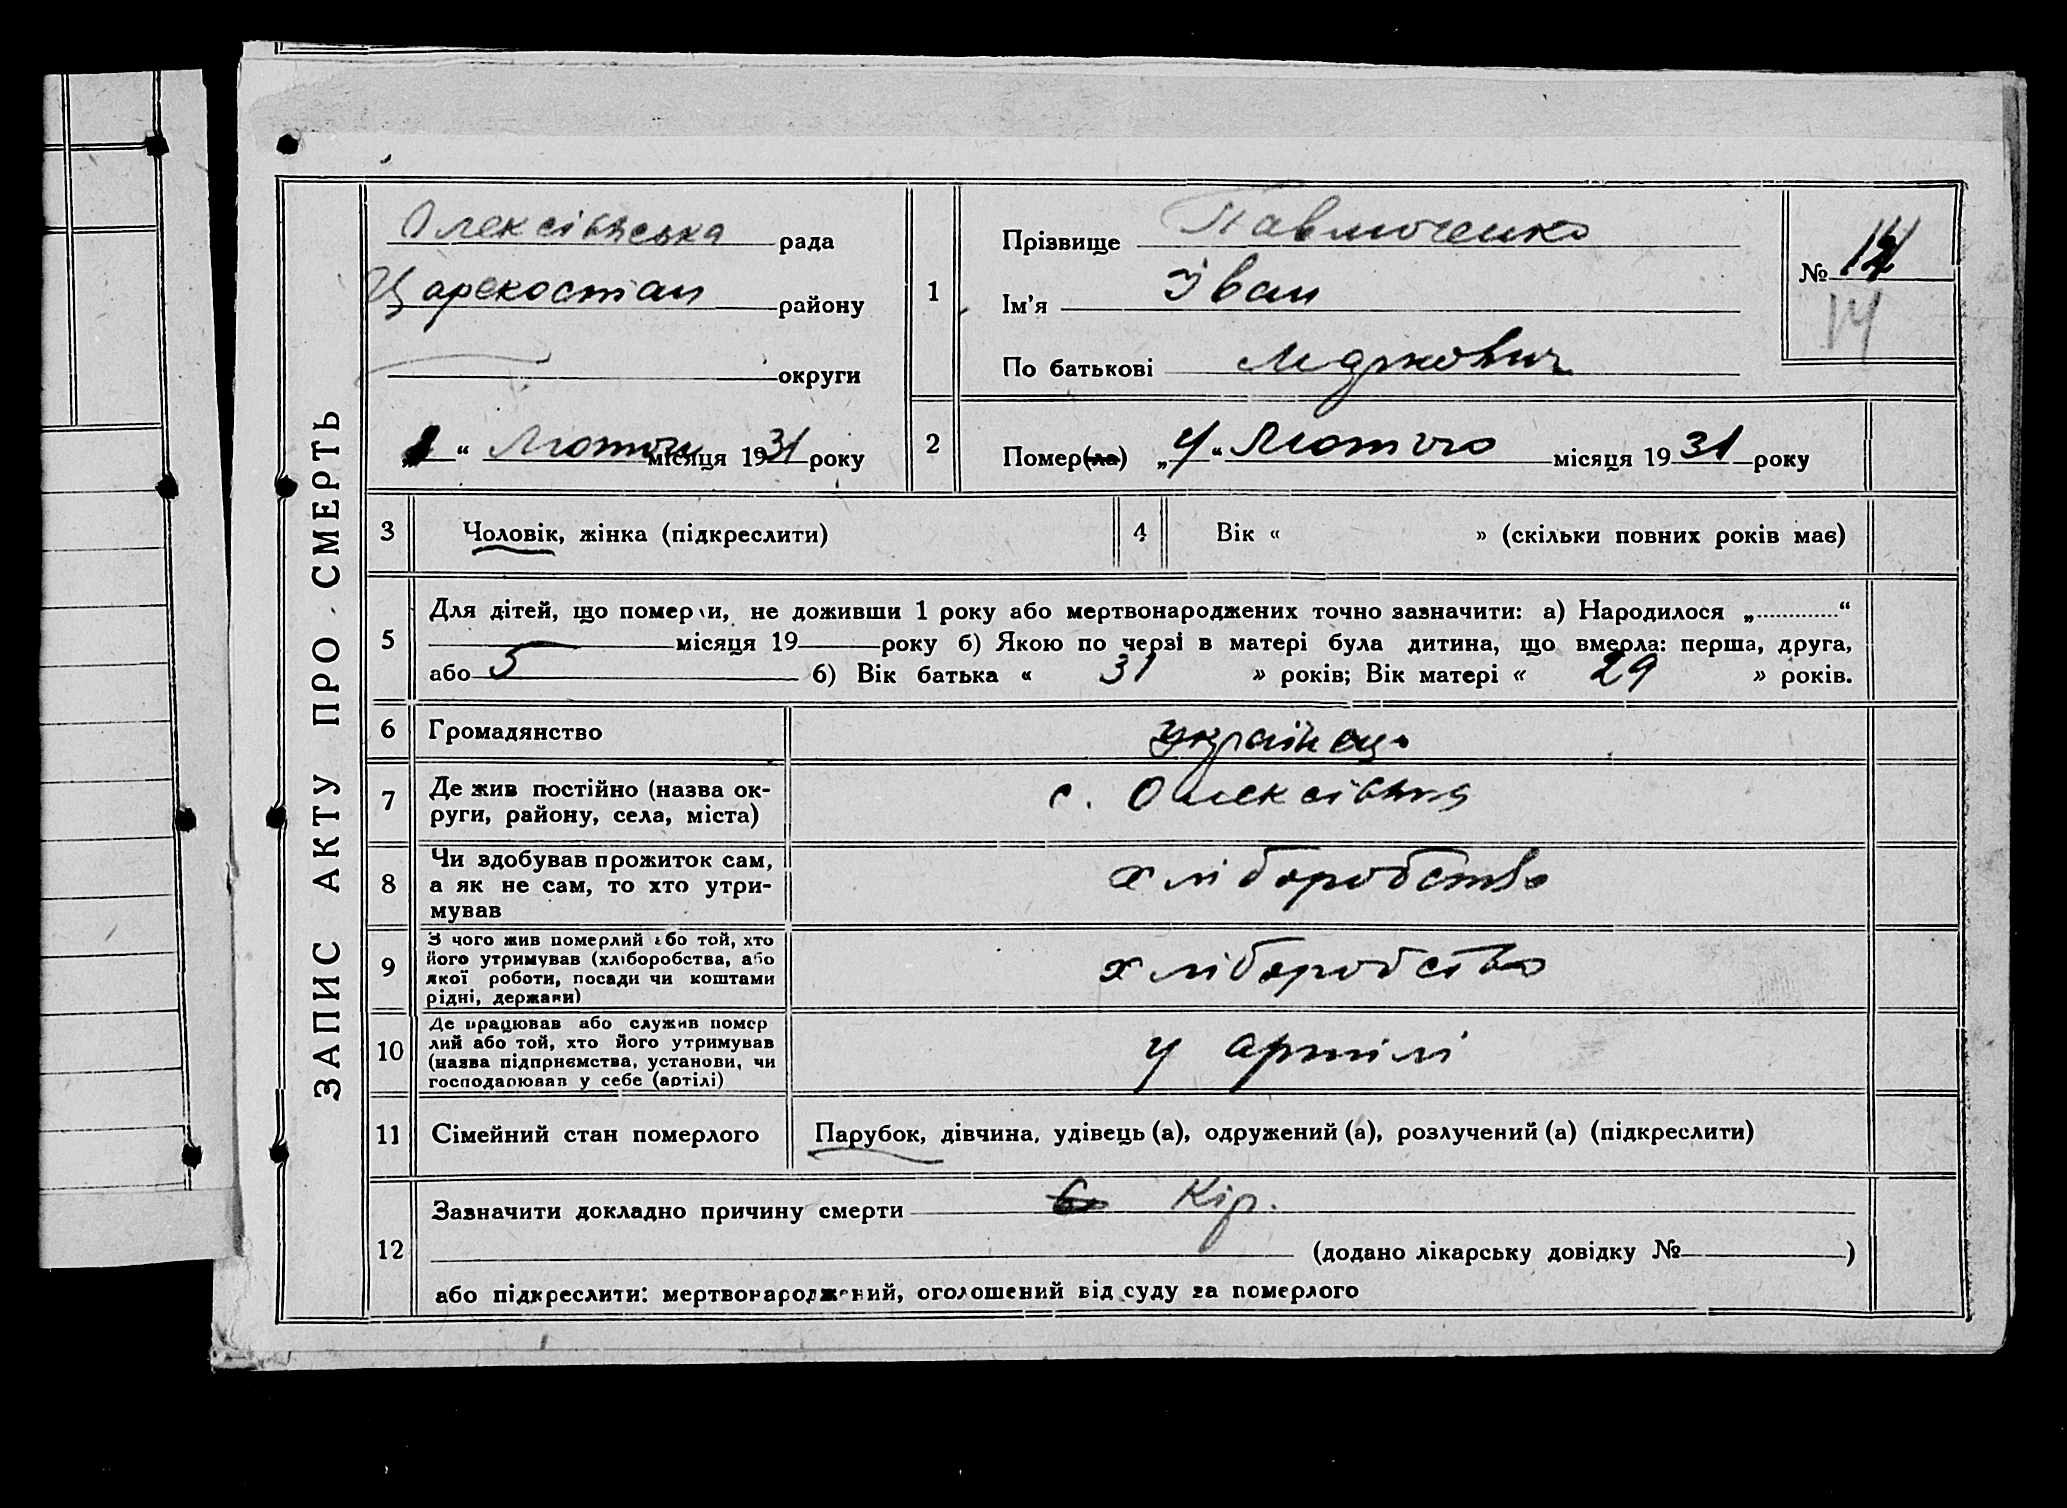 ЗАПИС АКТУ ПРО СМЕРТЬ
Олексіївська рада
Царекостан району
округи
“ Лютого місяця 1931 року
1
Прізвище Павлюченко
Ім'я Іван
По батькові Маркович
№ 14
14
2
Помер(ла) „4“ Лютого місяця 1931 року
3 Чоловік, жінка (підкреслити)
4 Вік « » (скільки повних років має)
5
Для дітей, що померли, не доживши 1 року або мертвонароджених точно зазначити: а) Народилося „.............“
місяця 19 року б) Якою по черзі в матері була дитина, що вмерла: перша, друга,
або 5 б) Вік батька « 31 » років; Вік матері « 29 » років.
6 Громадянство українець
7 Де жив постійно (назва ок-
руги, району, села, міста)
с. Олексіївка
8 Чи здобував прожиток сам,
а як не сам, то хто утри-
мував
хліборобство
9 З чого жив померлий або той, хто
його утримував (хліборобства, або
якої роботи, посади чи коштами
рідні, держави)
хліборобство
10 Де працював або служив помер
лий або той, хто його утримував
(назва підприємства, установи, чи
господарював у себе (артілі)
у артілі
11 Сімейний стан померлого Парубок, дівчина, удівець (а), одружений (а), розлучений (а) (підкреслити)
12
Зазначити докладно причину смерти Кір.
(додано лікарську довідку № )
або підкреслити: мертвонароджений, оголошений від суду за померлого